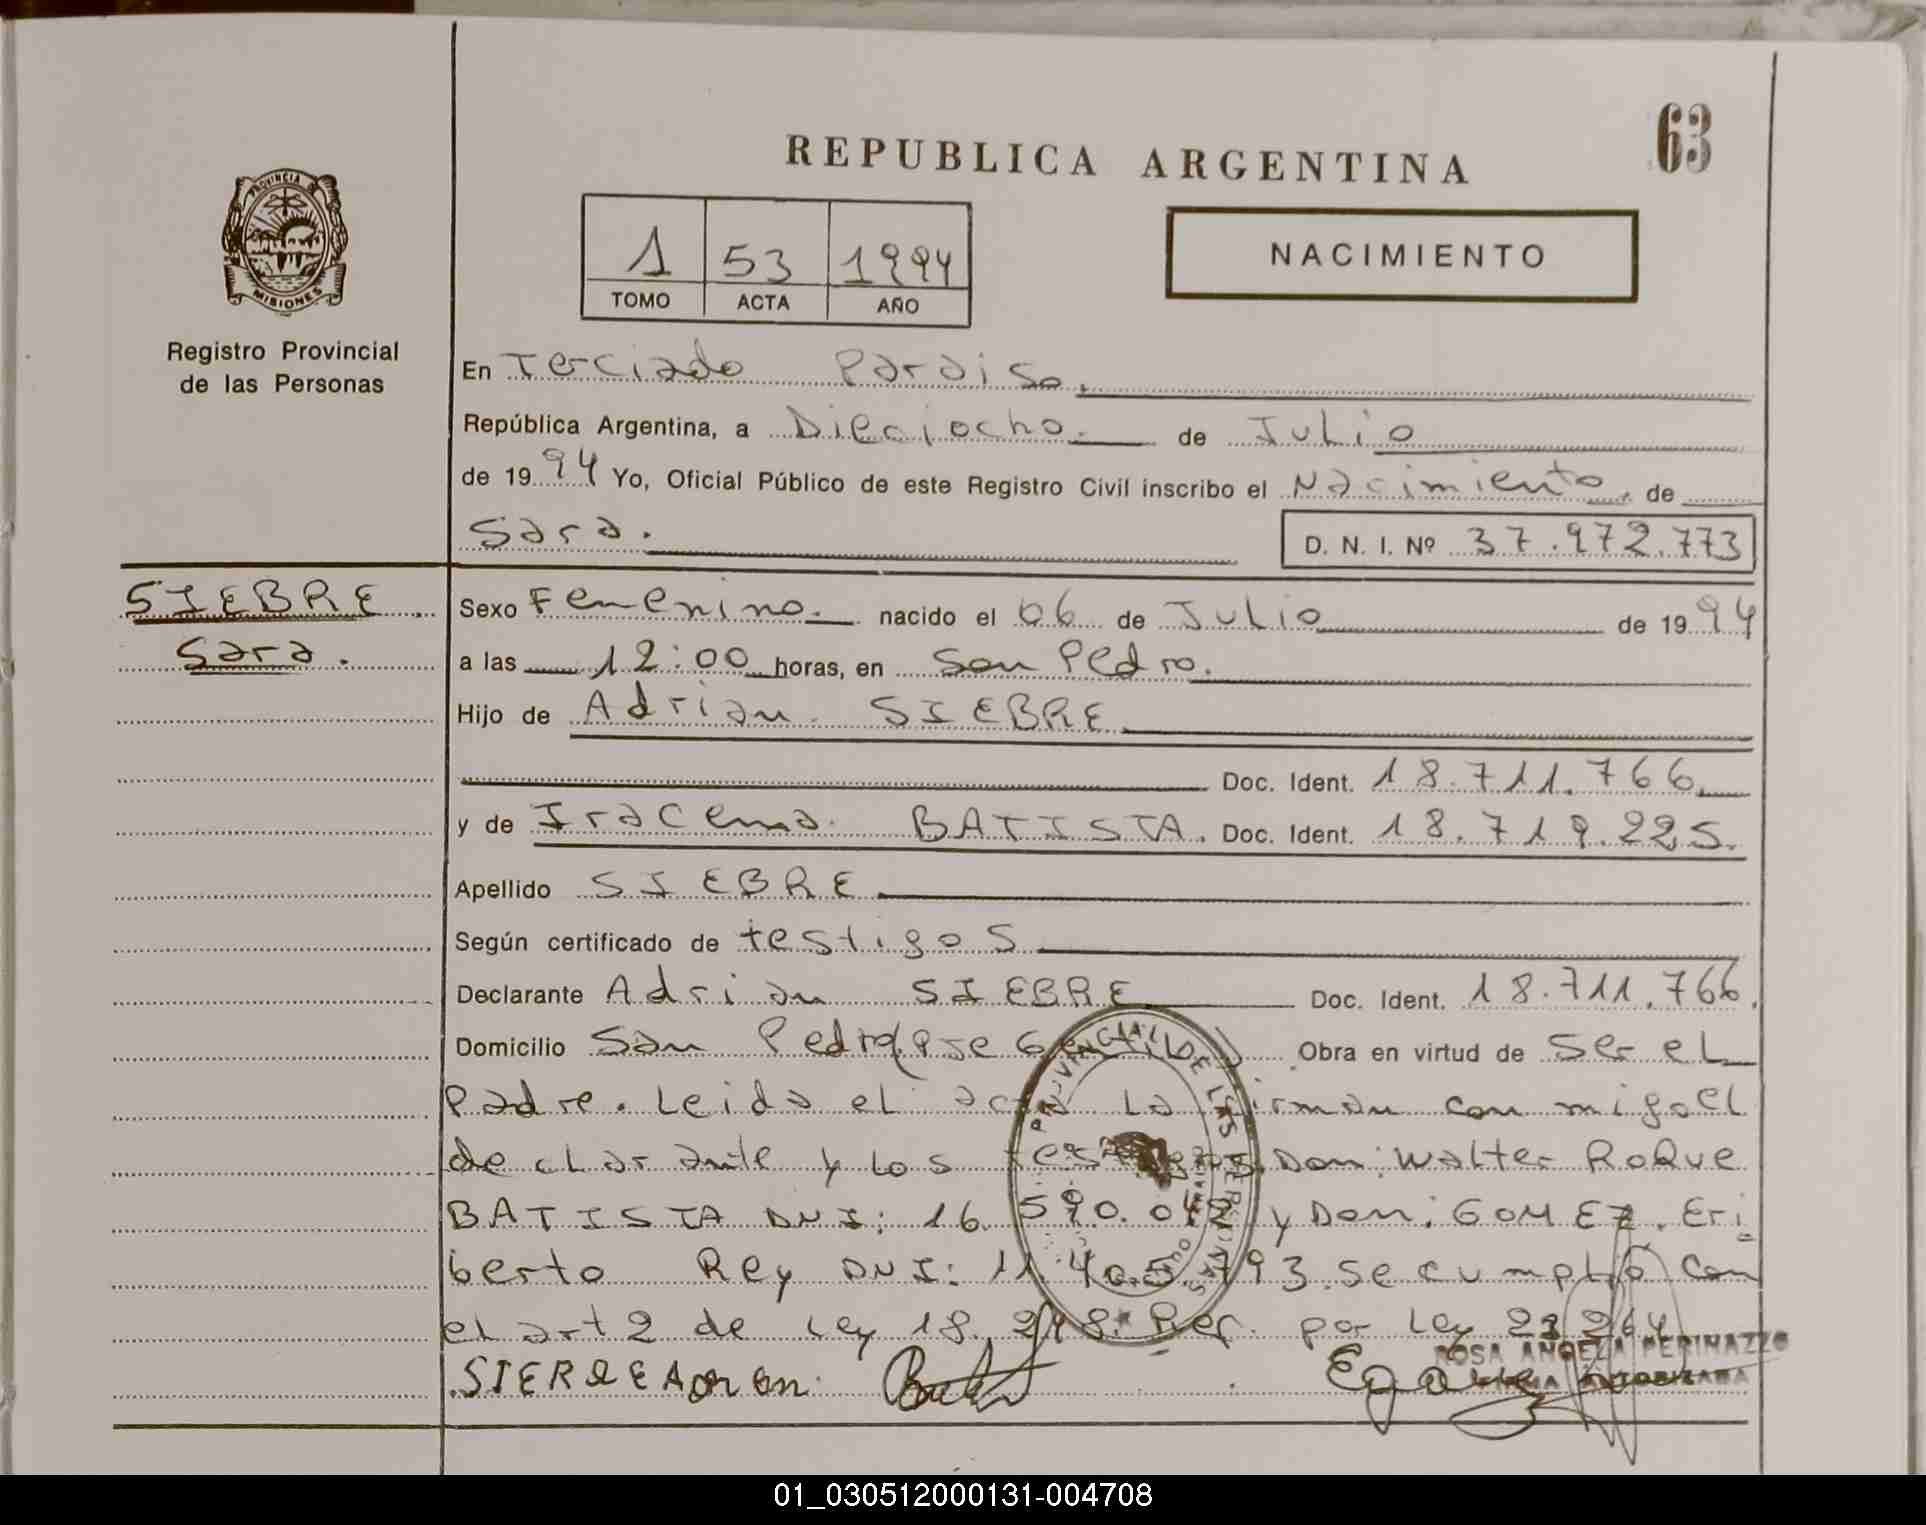 63
REPUBLICA ARGENTINA
PROVINCIA DE
MISIONES
Registro Provincial
de las Personas
1 53 1994
TOMO ACTA AÑO
NACIMIENTO
En Terciado Paraiso.
República Argentina, a Dieciocho. de Julio
de 1994 Yo, Oficial Público de este Registro Civil inscribo el Nacimiento. de
Sara.
D. N. I. Nº 37.972.773
SIEBRE
Sara.
Sexo Femenino. nacido el 06 de Julio de 1994
a las 12:00 horas, en San Pedro.
Hijo de Adrian SIEBRE
Doc. Ident. 18.711.766
y de Iracema BATISTA. Doc. Ident. 18.719.225.
Apellido SIEBRE
Según certificado de testigos
Declarante Adrian SIEBRE Doc. Ident. 18.711.766.
Domicilio San Pedro Obra en virtud de ser el
Padre. Leida el acta La firman con migo el
declarante y Los testigos Don: Walter Roque
BATISTA DNI: 16.590.042 y Don: GOMEZ. Eri
berto Rey DNI: 11.405.793. se cumplió con
el art 2 de Ley 18.248. Ref. por Ley 23.264
SIEBRE Adrian
ROSA ANGELA PERINAZZO
01_030512000131-004708